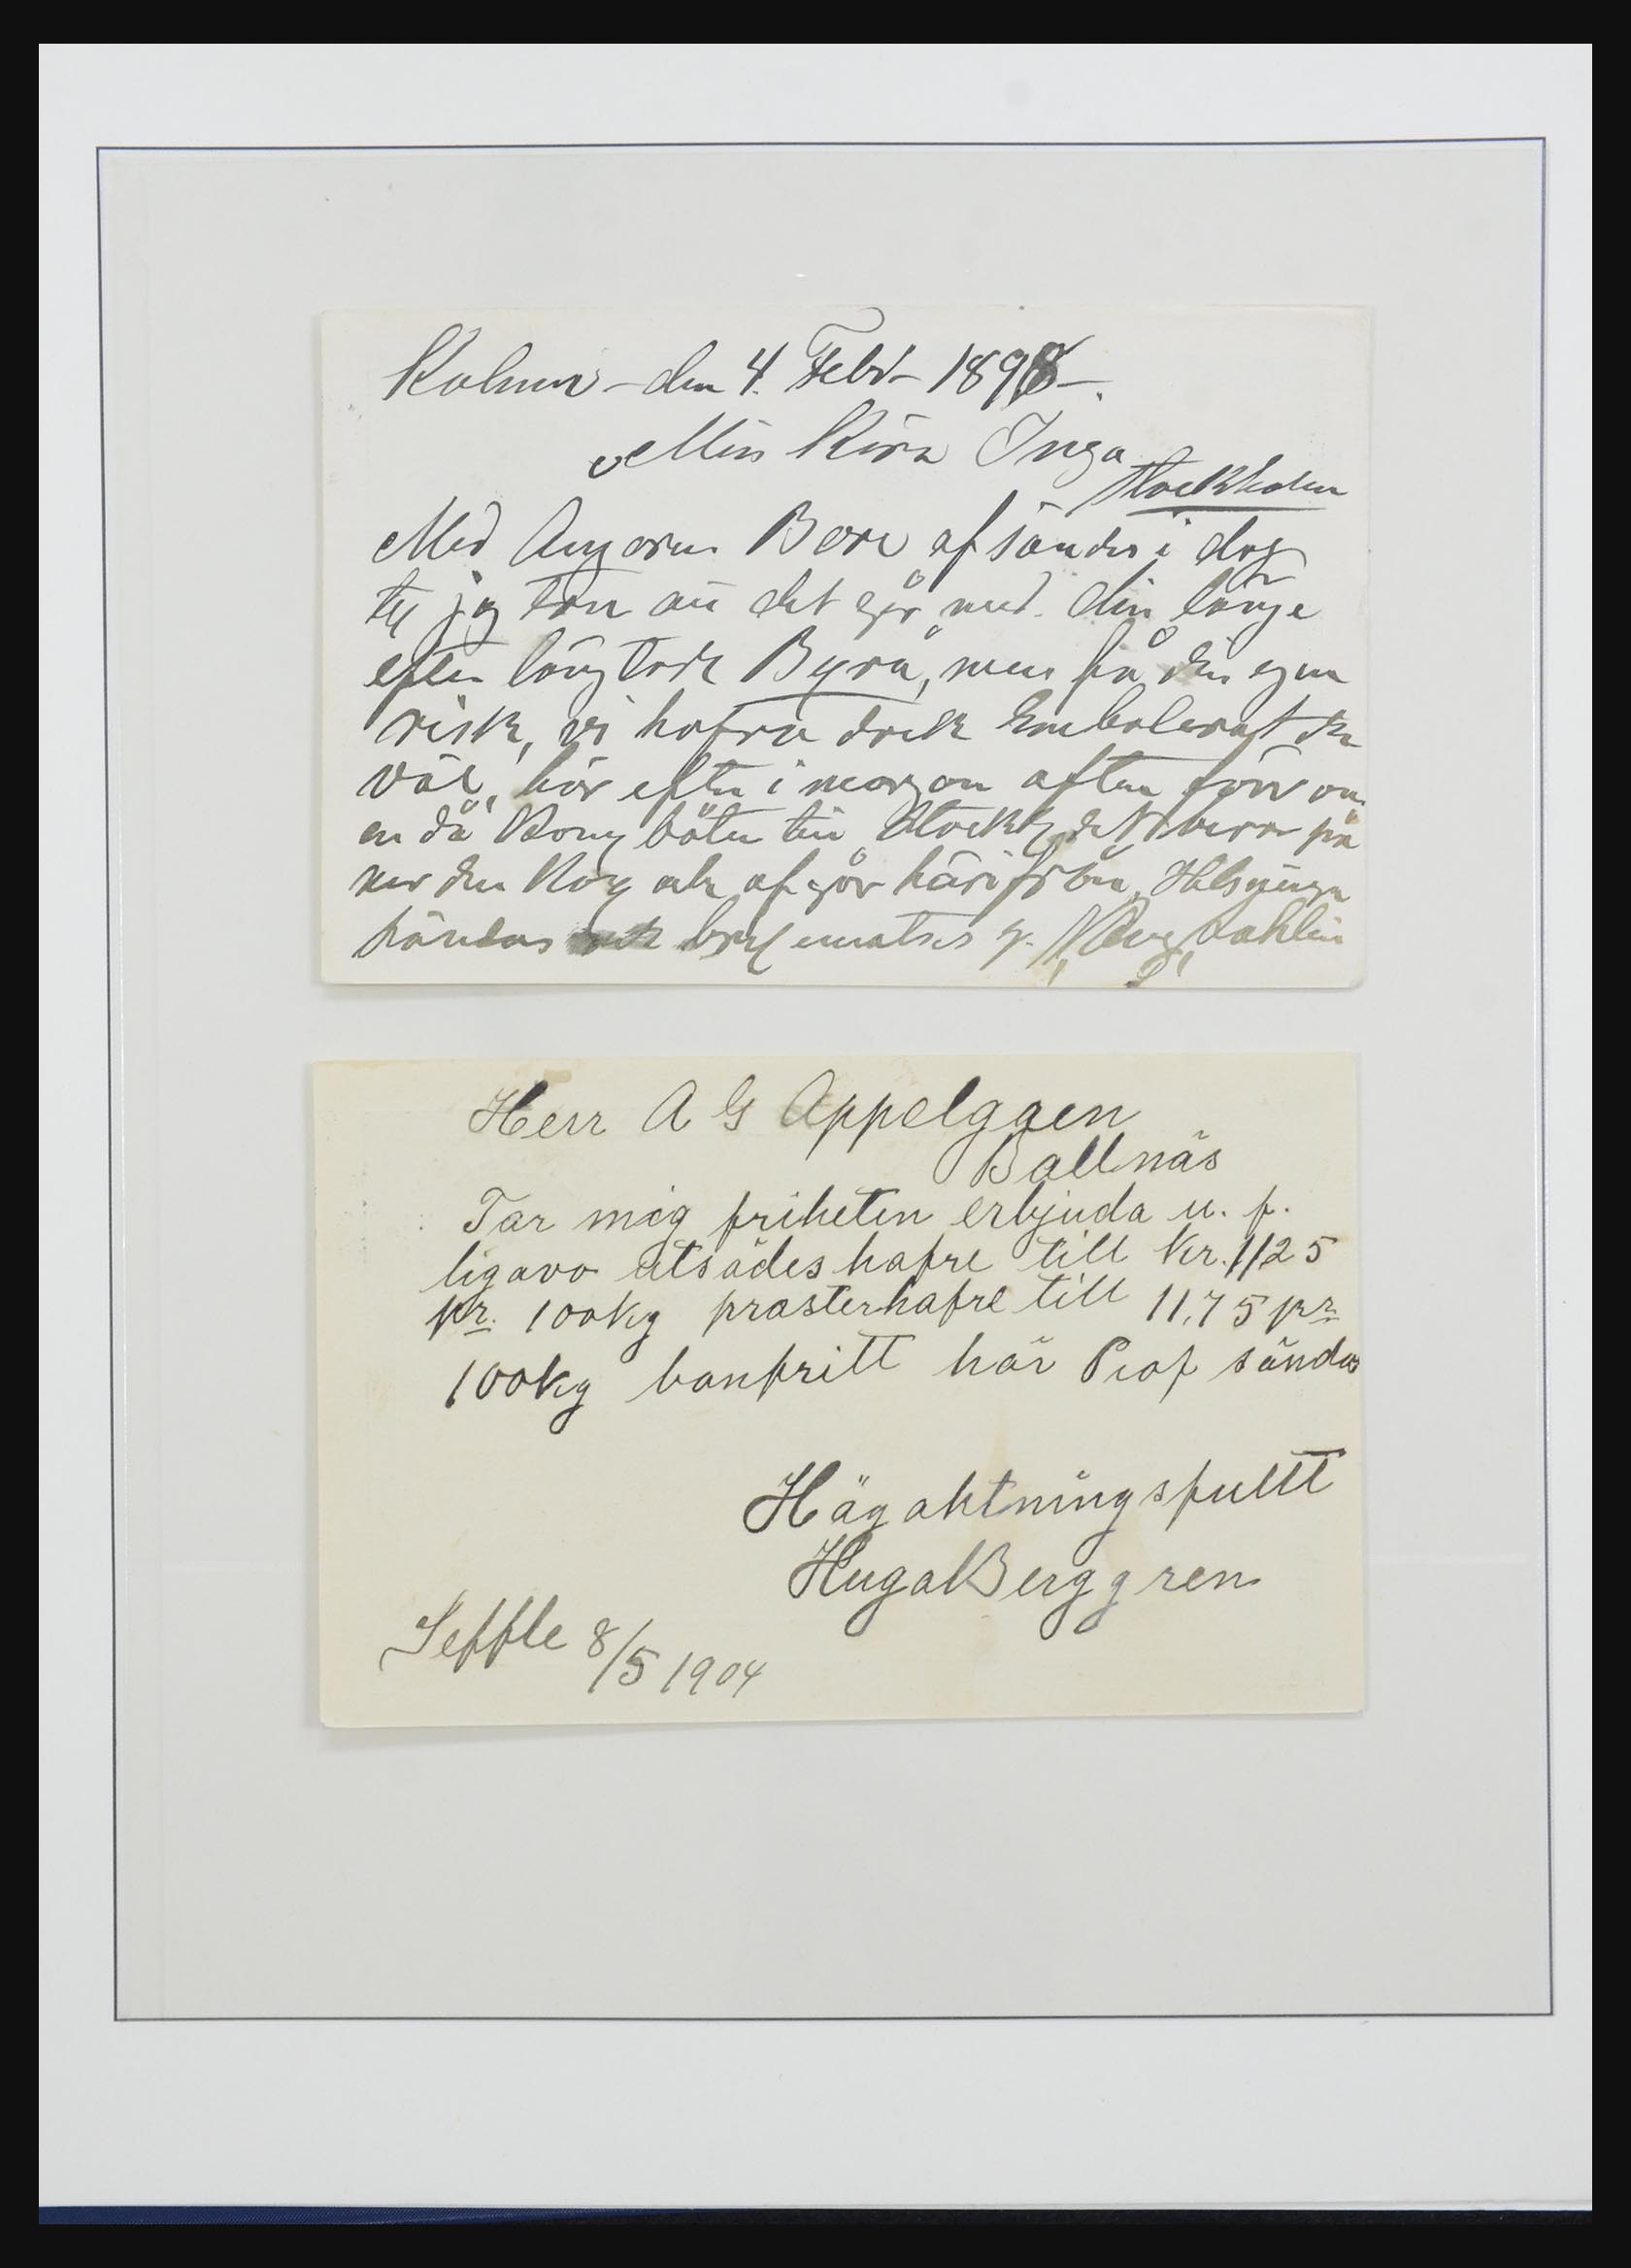 Kalmar den 4. Febr 1898.
Min Kära Inga
Stockholm
Med Ångaren Bore afsändes i dag
jag tror att det går med din länge
efter längtade Byrå, men på din egen
risk, vi hafva dock embalerat den
väl, hör efter i morgon afton
då båten till Stockh
afgår härifrån, Helsningar
Dahlin
Herr A G Appelggen
Ballnäs
Tar mig friheten erbjuda u. f.
ligavo utsädeshafre till Kr. 11,25
pr. 100kg prosterhafre till 11,75 pr
100kg banfritt här Prof sändas
Hägaktningsfullt
Huga Berggren
Seffle 8/5 1904